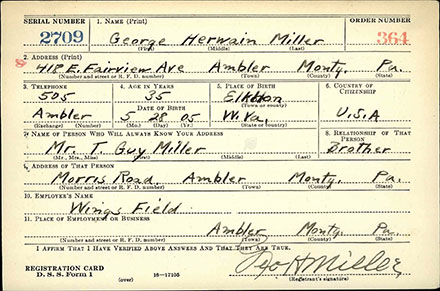 SERIAL NUMBER 1. NAME (Print) ORDER NUMBER
2709 George Herwain Miller 364
(First) (Middle) (Last)
2. ADDRESS (Print)
418 E. Fairview Ave Ambler Montg. Pa.
(Number and street or R. F. D. number) (Town) (County) (State)
3. TELEPHONE 4. AGE IN YEARS 5. PLACE OF BIRTH 6. COUNTRY OF CITIZENSHIP
505 35
DATE OF BIRTH (Town or county)
Ambler 5 28 05 W. Va. U.S.A
(Exchange) (Number) (Mo.) (Day) (Yr.) (State or country)
7. NAME OF PERSON WHO WILL ALWAYS KNOW YOUR ADDRESS 8. RELATIONSHIP OF THAT PERSON
Mr. T. Guy Miller Brother
(Mr., Mrs., Miss) (First) (Middle) (Last)
9. ADDRESS OF THAT PERSON
Morris Road, Ambler Montg. Pa.
(Number and street or R. F. D. number) (Town) (County) (State)
10. EMPLOYER'S NAME
Wings Field
11. PLACE OF EMPLOYMENT OR BUSINESS
Ambler Montg. Pa.
(Number and street or R. F. D. number) (Town) (County) (State)
I AFFIRM THAT I HAVE VERIFIED ABOVE ANSWERS AND THAT THEY ARE TRUE.
Geo H Miller
REGISTRATION CARD
D. S. S. Form 1 (over) 16—17105 (Registrant's signature)